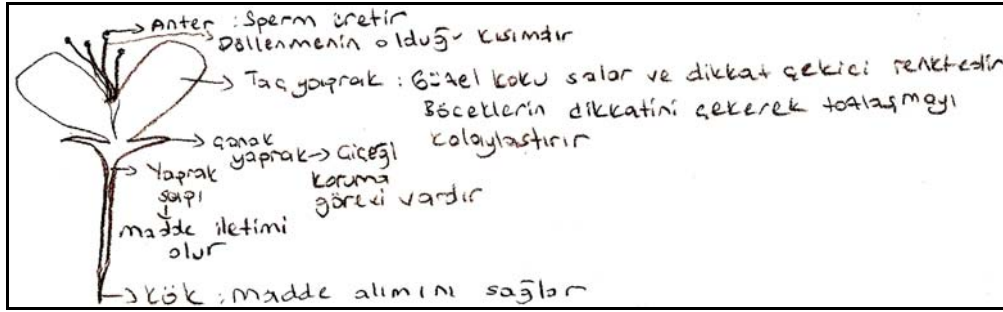 Anter : Sperm üretir
Döllenmenin olduğu kısımdır
Taç yaprak : Güzel koku salar ve dikkat çekici renktedir
Böceklerin dikkatini çekerek tozlaşmayı
kolaylaştırır
çanak
yaprak → Çiçeği
koruma
görevi vardır
Yaprak
sapı
↓
madde iletimi
olur
Kök : madde alımını sağlar